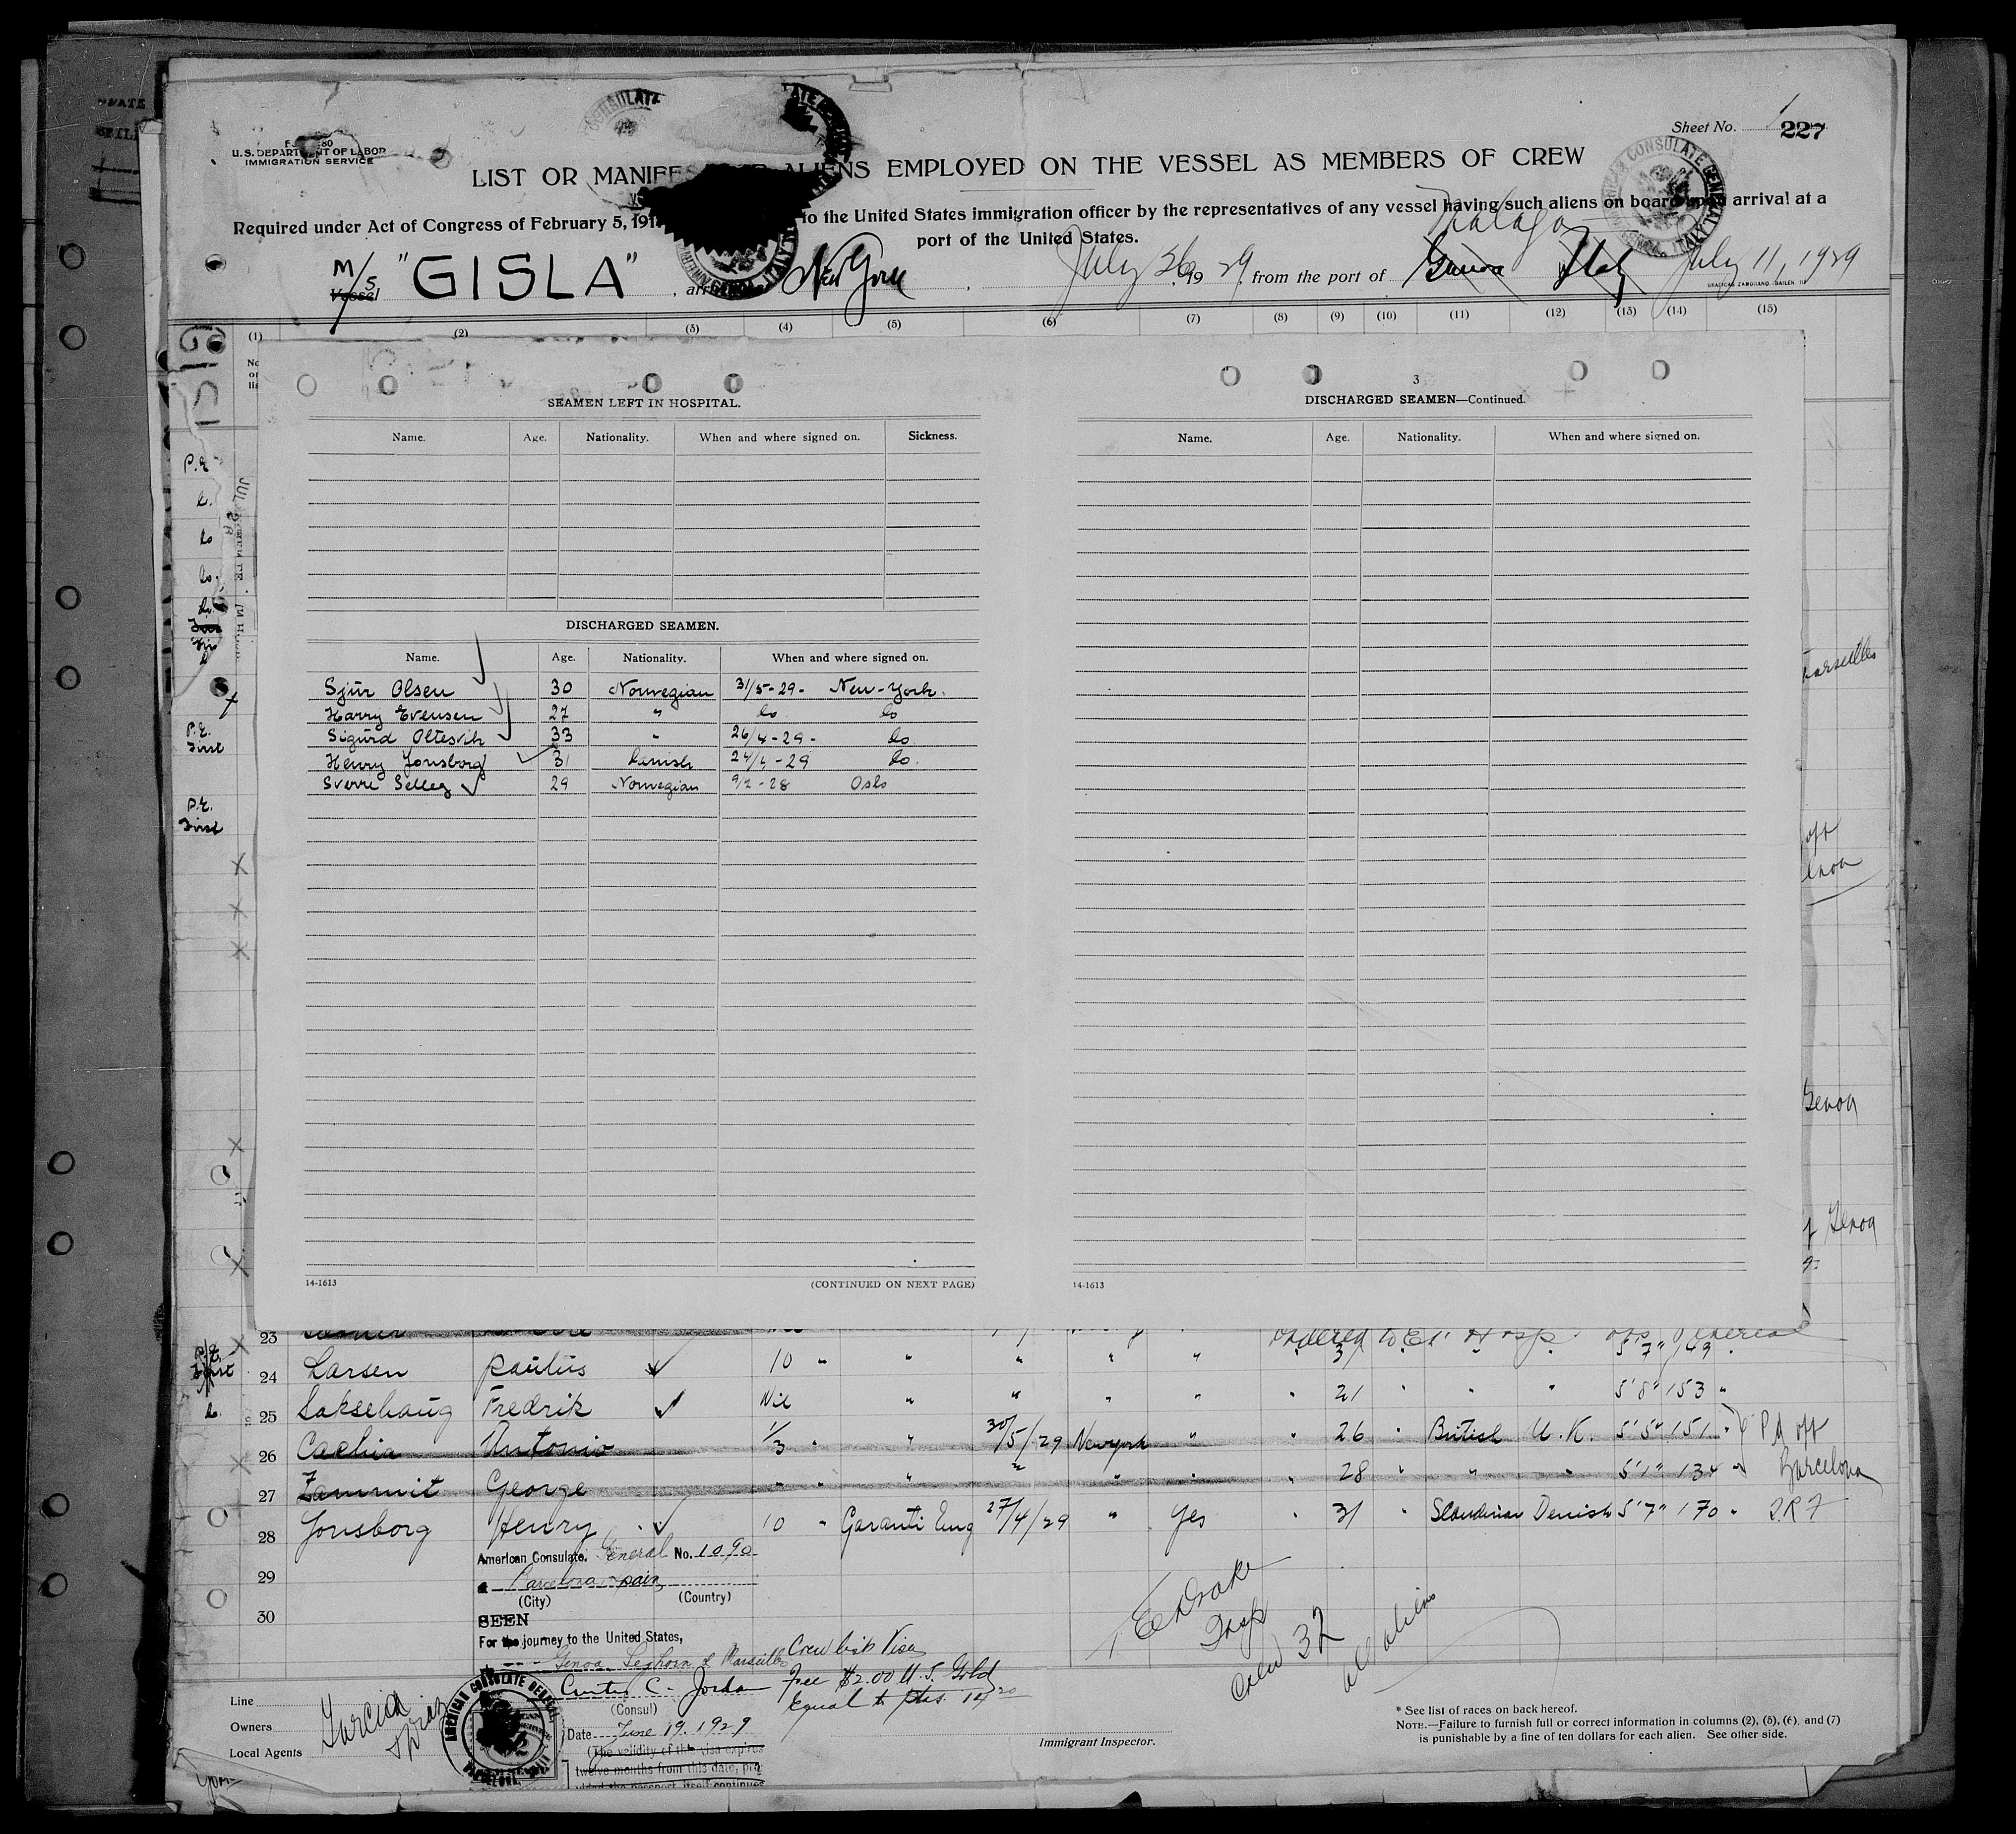 Sheet No. 1
227
U. S. DEPARTMENT OF LABOR
IMMIGRATION SERVICE
LIST OR MANIFEST OF ALIENS EMPLOYED ON THE VESSEL AS MEMBERS OF CREW
Required under Act of Congress of February 5, 191 to the United States immigration officer by the representatives of any vessel having such aliens on board upon arrival at a
port of the United States.
Malaga
M/S Vessel "GISLA" New York July 26 1929 from the port of Genoa Italy July 11, 1929
GRAFICAS ZAMORANO
(1) (2) (3) (4) (5) (6) (7) (8) (9) (10) (11) (12) (13) (14) (15)
SEAMEN LEFT IN HOSPITAL.
Name. Age. Nationality. When and where signed on. Sickness.
DISCHARGED SEAMEN.
Name. Age. Nationality. When and where signed on.
Sjūr Olsen 30 Norwegian 31/5-29- New-York.
Harry Evensen 27 " do do
Sigūrd Oltesvik 33 " 26/4-29- do
Henry Jonsborg 31 Danish 24/4-29 do.
Sverre Selleg 29 Norwegian 9/2-28 Oslo
14-1613
(CONTINUED ON NEXT PAGE)
3
DISCHARGED SEAMEN—Continued.
Name. Age. Nationality. When and where signed on.
14-1613
Marseilles
off
Genoa
Genoa
Genoa
P.E.
First
P.E.
First
23 ordered to Hosp.
24 Larsen Paulūs 10 " " " " " " 31 " " " 5'7" 149 "
25 Saksehaūg Fredrik Nil " " " " " 21 " " " 5'8" 153 "
26 Cachia Antonio 1/3 " " 30/5/29 Newyork " " 26 " British U.K. 5'5" 151 " Pd off
27 Zammit George " " " " " " " 28 " " " 5'1" 134 " Barcelona
28 Jonsborg Henry 10 " Garanti Eng 27/4/29 " Yes " 31 " Scandinian Denish 5'7" 170 "
29
30
American Consulate General No. 1090
Barcelona Spain
(City) (Country)
SEEN
For the journey to the United States,
Genoa, Leghorn & Marseilles
Curtis C. Jordan
(Consul)
Date June 19. 1929
(The validity of this visa expires
twelve months from this date, pro-
vided the passport itself continues
Crew list Visa
Fee $2.00 U.S. Gold
Equal to ptas. 14.20
AMERICAN CONSULATE GENERAL
E Drake
Insp
Crew 32
all aliens
Line
Owners
Local Agents
Garcia & Diaz
Immigrant Inspector.
* See list of races on back hereof.
NOTE.—Failure to furnish full or correct information in columns (2), (5), (6), and (7)
is punishable by a fine of ten dollars for each alien. See other side.